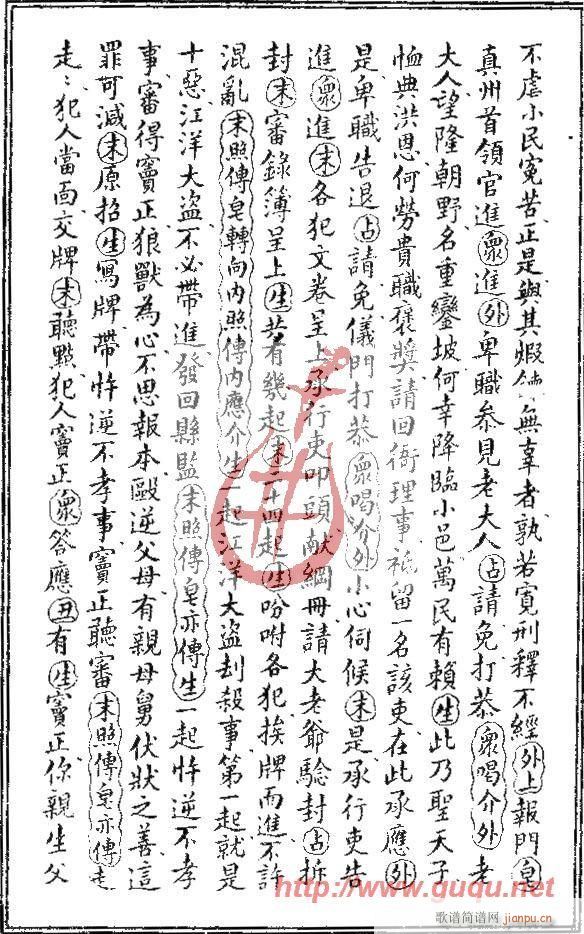 不虐小民寃苦正是與其嘏 無辜者孰若寬刑釋不經外上報門皂
真州首領官進眾進外卑職參見老大人占請免打恭眾喝介外老
大人望隆朝野名重鑾坡何幸降臨小邑萬民有賴生此乃聖天子
恤典洪恩何勞貴職褒獎請回衙理事祗留一名該吏在此承應外
是卑職告退占請免儀門打恭眾喝介外小心伺候末是承行吏告
進眾進末各犯文卷呈上承行吏叩頭献綱冊請大老爺騐封占拆
封末審錄簿呈上生若有幾起末二十四起生吩咐各犯挨牌而進不許
混亂末照傳皂轉向內照傳內應介生一起江洋大盜刦殺事第一起就是
十惡江洋大盜不必帶進發回縣監末照傳皂亦傳生一起忤逆不孝
事審得竇正狼獸為心不思報本毆逆父母有親母舅伏狀之善這
罪可減末原招生寫牌帶忤逆不孝事竇正聽審末照傳皂亦傳走
走：犯人當面交牌末聽點犯人竇正眾答應丑有生竇正你親生父
http://www.guqu.net
歌谱简谱网
jianpu.cn